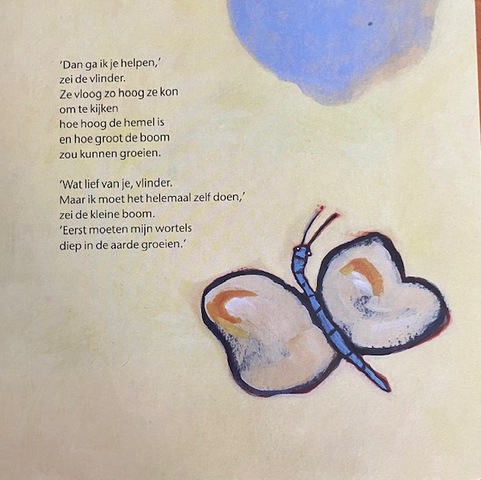 ‘Dan ga ik je helpen,’
zei de vlinder.
Ze vloog zo hoog ze kon
om te kijken
hoe hoog de hemel is
en hoe groot de boom
zou kunnen groeien.

‘Wat lief van je, vlinder.
Maar ik moet het helemaal zelf doen,’
zei de kleine boom.
‘Eerst moeten mijn wortels
diep in de aarde groeien.’